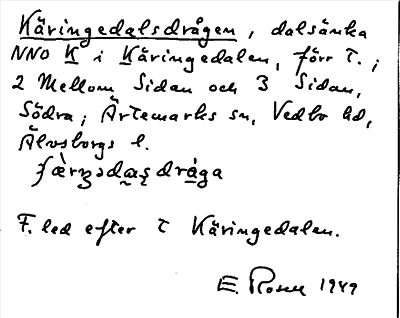 Käringedalsdrågen, dalsänka
NNO K i Käringedalen, förr T.;
2 Mellom Sidan och 3 Sidan,
Södra; Ärtemarks sn, Vedbo hd,
Älvsborgs l.
dråga
F. led efter T Käringedalen.
E. Rosell 1949